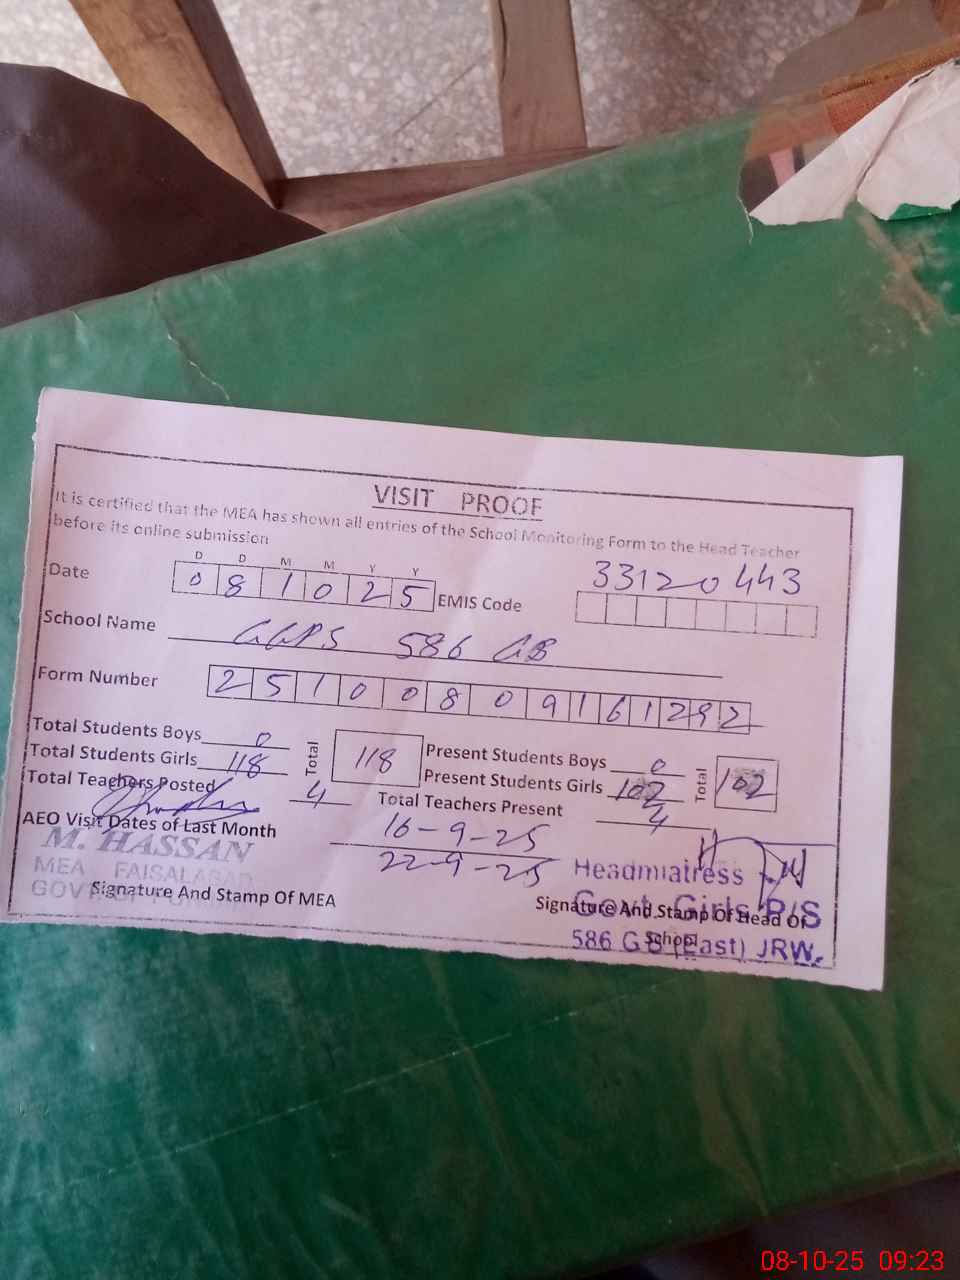 VISIT PROOF
It is certified that the MEA has shown all entries of the School Monitoring Form to the Head Teacher
before its online submission
D D M M Y Y
Date 0 8 1 0 2 5 EMIS Code 33120443
School Name GGPS 586 GB
Form Number 2 5 1 0 0 8 0 9 1 6 1 2 9 2
Total Students Boys 0 Total 118 Present Students Boys 0 Total 102
Total Students Girls 118 Present Students Girls 102
Total Teachers Posted 4 Total Teachers Present 4
AEO Visit Dates of Last Month 16-9-25
22-9-25
M. HASSAN
MEA FAISALABAD
Signature And Stamp Of MEA
Headmiatress
Govt. Girls P/S
586 GB (East) JRW.
Signature And Stamp Of Head Of
School
08-10-25 09:23